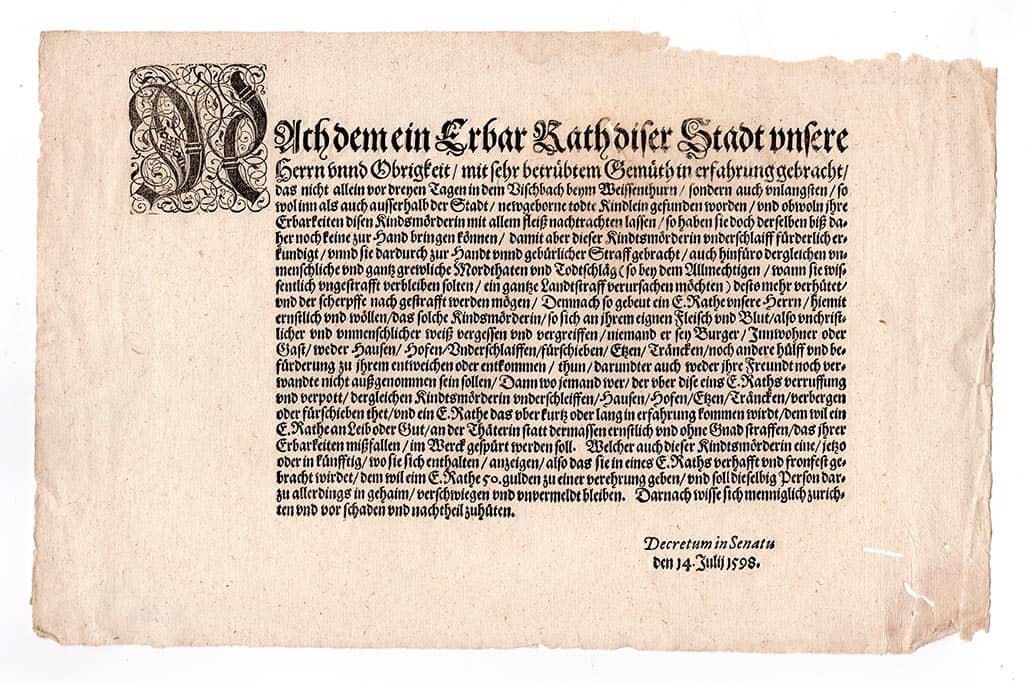 NAch dem ein Erbar Rath diser Stadt vnsere
Herrn vnnd Obrigkeit / mit sehr betrübtem Gemüth in erfahrung gebracht /
das nicht allein vor dreyen Tagen in dem Vischbach beym Weissenthurn / sondern auch vnlangsten / so
wol inn als auch ausserhalb der Stadt / newgeborne todte Kindlein gefunden worden / vnd obwoln jhre
Erbarkeiten disen Kindsmörderin mit allem fleiß nachtrachten lassen / so haben sie doch derselben biß da-
her noch keine zur Hand bringen können / damit aber dieser Kindtsmörderin vnderschlaiff fürderlich er-
kundigt / vnnd sie dardurch zur Handt vnnd gebürlicher Straff gebracht / auch hinfüro dergleichen vn-
menschliche vnd gantz grewliche Mordthaten vnd Todtschläg (so bey dem Allmechtigen / wann sie wis-
sentlich vngestrafft verbleiben solten / ein gantze Landtstraff verursachen möchten) desto mehr verhütet /
vnd der scherpffe nach gestrafft werden mögen / Demnach so gebeut ein E. Rathe vnsere Herrn / hiemit
ernstlich vnd wöllen / das solche Kindsmörderin / so sich an jhrem eignen Fleisch vnd Blut / also vnchrist-
licher vnd vnmenschlicher weiß vergessen vnd vergreiffen / niemand er sey Burger / Innwohner oder
Gast / weder Hausen / Hofen / Vnderschlaiffen / fürschieben / Etzen / Träncken / noch andere hülff vnd be-
fürderung zu jhrem entweichen oder entkommen / thun / darundter auch weder jhre Freundt noch ver-
wandte nicht außgenommen sein sollen / Dann wo jemand wer / der vber dise eins E. Raths verruffung
vnd verpott / dergleichen Kindtsmörderin vnderschleiffen / Hausen / Hofen / Etzen / Träncken / verbergen
oder fürschieben thet / vnd ein E. Rathe das vber kurtz oder lang in erfahrung kommen wirdt / dem wil ein
E. Rathe an Leib oder Gut / an der Thäterin statt dermassen ernstlich vnd ohne Gnad straffen / das jhrer
Erbarkeiten mißfallen / im Werck gespürt werden soll. Welcher auch dieser Kindtsmörderin eine / jetzo
oder in künfftig / wo sie sich enthalten / anzeigen / also das sie in eines E. Raths verhafft vnd fronfest ge-
bracht wirdet / dem wil eim E. Rathe 50. gulden zu einer verehrung geben / vnd soll dieselbig Person dar-
zu allerdings in gehaim / verschwiegen vnd vnvermeldt bleiben. Darnach wisse sich menniglich zurich-
ten vnd vor schaden vnd nachtheil zuhüten.
Decretum in Senatu
den 14. Julij 1598.